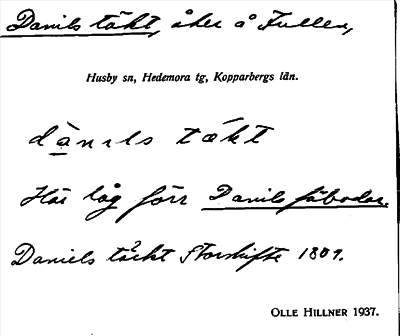 Danils täkt, åker å Fullen,
Husby sn, Hedemora tg, Kopparbergs län.
dànils tækt
Här låg förr Danils fäbodar.
Daniels täckt Storskifte 1801.
OLLE HILLNER 1937.